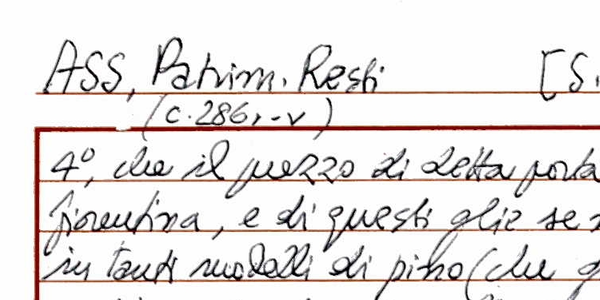 ASS, Patrim. Resti [S.
(c. 286r-v)
4°, che il prezzo di detta porta
fiorentina, e di questi glie se
in tanti modelli di pino (che